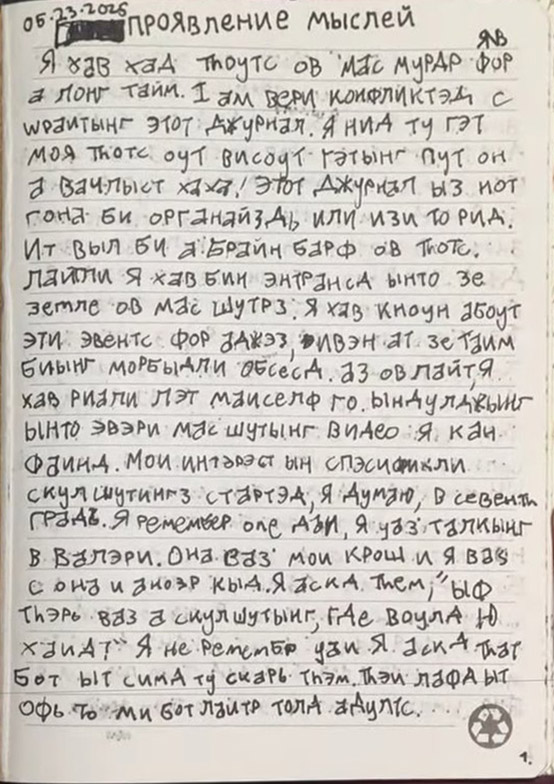 05.23.2026
ПРОЯВЛЕНИЕ МЫСЛЕЙ
ЯВ
Я хав хад тhоутс ов мас мурдр фор
а лонг тайм. I ам вери конфликтэд с
wраитынг этот джурнал. Я нид ту гэт
моя тhотс оут висоут гэтынг пут он
а вачлыст хаха! Этот джурнал ыз нот
гона би органайздь или изи то рид.
Ит выл би а брайн барф ов тhотс.
Лайтли я хав бин энтрансд ынто зе
земле ов мас шутрз. Я хав кноун абоут
эти эвентс фор аджэз, ивэн ат зе таим
биынг морбыдли обсесд. аз ов лайт, я
хав риали лэт маиселф го. ындулджынг
ынто эвэри мас шутынг видео я кан
фаинд. Мои интэрэст ын спэсификли
скул шутингз стартэд, я думаю, в севенth
градь. Я ремембер one дэи, я уаз талкынг
в валэри. Она ваз мои крош и я ваз
с она и аноэр кыд. Я аскд them, "ыф
thэрь ваз а скул шутынг, где воулд ю
хаид?" Я не ремембр уаи я аскд that
бот ыт симд ту скарь thэм. thэи лафд ыт
офь то ми бот лайтр толд адултс.
1.